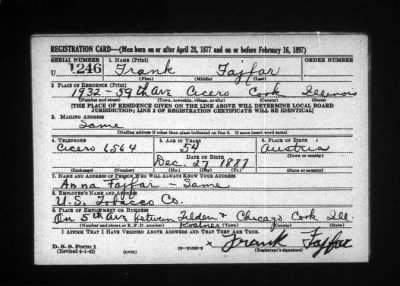 REGISTRATION CARD—(Men born on or after April 28, 1877 and on or before February 16, 1897)
SERIAL NUMBER 1. NAME (Print) ORDER NUMBER
U 1246 Frank Fajfar
(First) (Middle) (Last)
2. PLACE OF RESIDENCE (Print)
1932 - 59th Ave Cicero Cook Illinois
(Number and street) (Town, township, village, or city) (County) (State)
[THE PLACE OF RESIDENCE GIVEN ON THE LINE ABOVE WILL DETERMINE LOCAL BOARD
JURISDICTION; LINE 2 OF REGISTRATION CERTIFICATE WILL BE IDENTICAL]
3. MAILING ADDRESS
Same
[Mailing address if other than place indicated on line 2. If same insert word same]
4. TELEPHONE 5. AGE IN YEARS 6. PLACE OF BIRTH
Cicero 6564 54 Austria
DATE OF BIRTH (Town or county)
Dec. 27 1887
(Exchange) (Number) (Mo.) (Day) (Yr.) (State or country)
7. NAME AND ADDRESS OF PERSON WHO WILL ALWAYS KNOW YOUR ADDRESS
Anna Fajfar - Same
8. EMPLOYER'S NAME AND ADDRESS
U.S. Tobacco Co.
9. PLACE OF EMPLOYMENT OR BUSINESS
On 5th Ave between Chicago Cook Ill.
(Number and street or R. F. D. number) (Town) (County) (State)
I AFFIRM THAT I HAVE VERIFIED ABOVE ANSWERS AND THAT THEY ARE TRUE.
D. S. S. Form 1
(Revised 4-1-42) (over) x Frank Fajfar
(Registrant's signature)